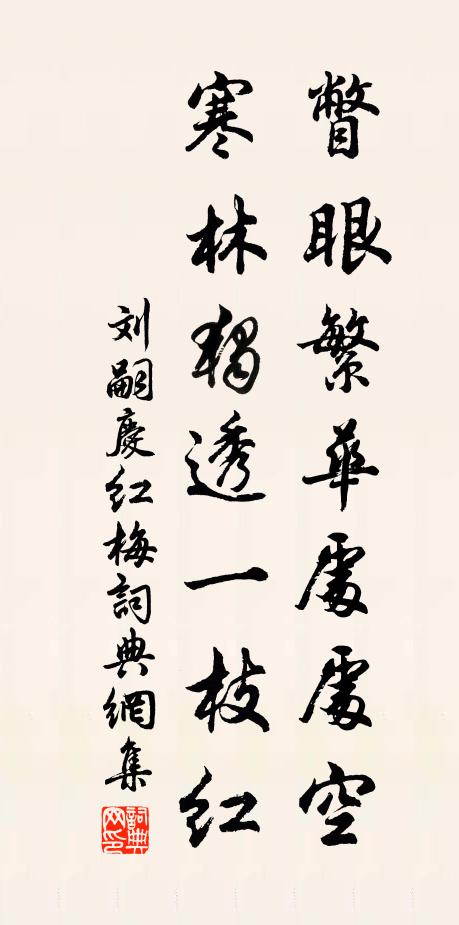 瞥眼繁華處處空
寒林獨透一枝紅
刘嗣慶红梅詞典網集
詞典网印